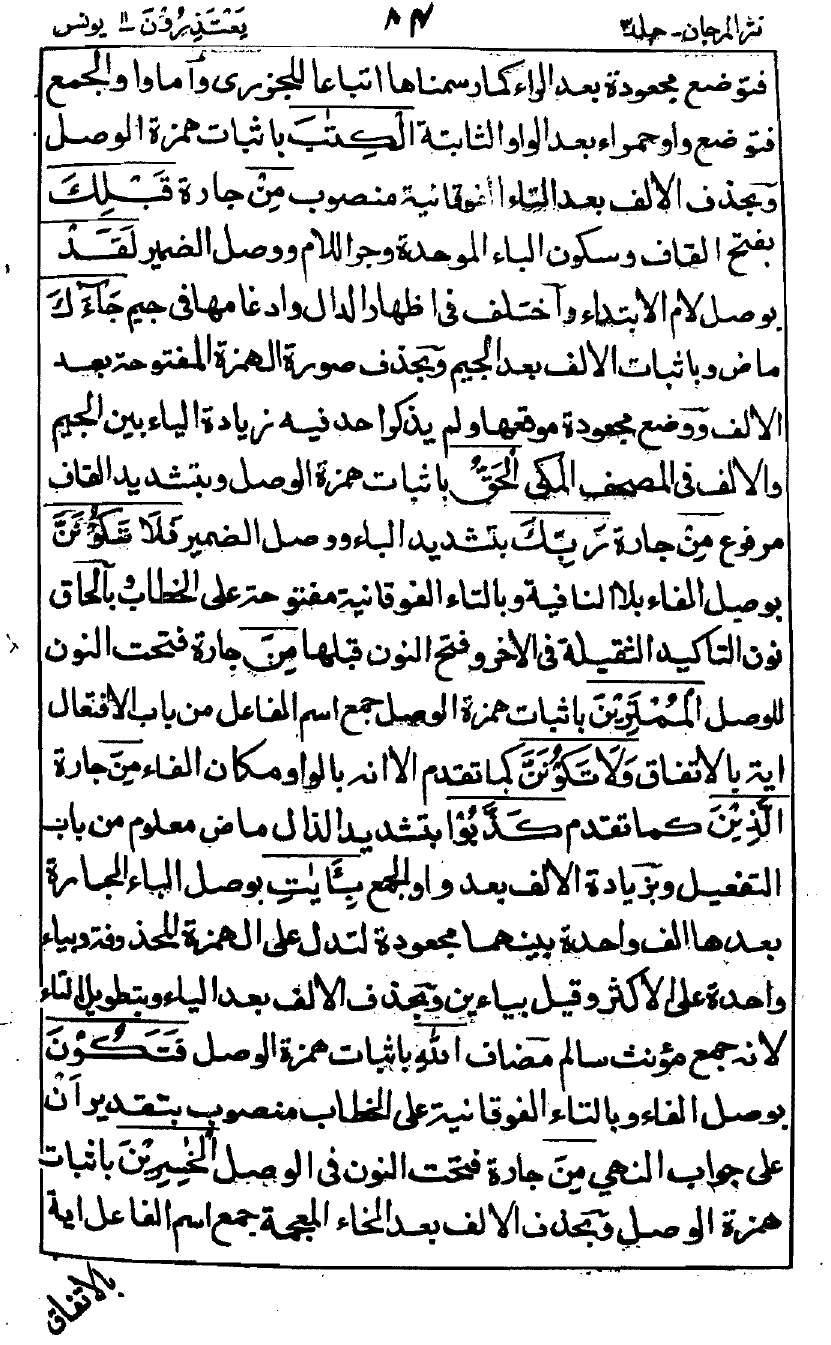 نثر المرجان - جلد ٣ ٨٤ يَعْتَذِرُوْنَ ١١ يونس
فتوضع مجعودة بعد الراء كما رسمناها اتباعا للجزرى وأما واو الجمع
فتوضع واو حمراء بعد الواو الثابتة الْكِتٰبَ باثبات همزة الوصل
وبحذف الالف بعد التاء الفوقانية منصوب مِنْ جارة قَبْلِكَ
بفتح القاف وسكون الباء الموحدة وجر اللام ووصل الضمير لَقَدْ
بوصل لام الابتداء واختلف فى اظهار الدال وادغامها فى جيم جَآءَكَ
ماض وباثبات الالف بعد الجيم وبحذف صورة الهمزة المفتوحة بعد
الالف ووضع مجعودة موقعها ولم يذكر احد فيه زيادة الياء بين الجيم
والالف فى المصحف المكى الْحَقُّ باثبات همزة الوصل وبتشديد القاف
مرفوع مِنْ جارة رَّبِّكَ بتشديد الباء ووصل الضمير فَلَا تَكُوْنَنَّ
بوصل الفاء بلا النافية وبالتاء الفوقانية مفتوحة على الخطاب بالحاق
نون التاكيد الثقيلة فى الاخر وفتح النون قبلها مِنَ جارة فتحت النون
للوصل الْمُمْتَرِيْنَ باثبات همزة الوصل جمع اسم الفاعل من باب الافتعال
اية بالاتفاق وَلَا تَكُوْنَنَّ كما تقدم الا انه بالواو مكان الفاء مِنَ جارة
الَّذِيْنَ كما تقدم كَذَّبُوْا بتشديد الذال ماض معلوم من باب
التفعيل وبزيادة الالف بعد واو الجمع بِئَايٰتِ بوصل الباء الجارة
بعدها الف واحدة بينهما مجعودة لتدل على الهمزة المحذوفة وبياء
واحدة على الاكثر وقيل بياءين وبحذف الالف بعد الياء وبتطويل التاء
لانه جمع مؤنث سالم مضاف اللهِ باثبات همزة الوصل فَتَكُوْنَ
بوصل الفاء وبالتاء الفوقانية على الخطاب منصوب بتقدير ان
على جواب النهي مِنَ جارة فتحت النون فى الوصل الْخٰسِرِيْنَ باثبات
همزة الوصل وبحذف الالف بعد الخاء المعجمة جمع اسم الفاعل اية
بالاتفاق